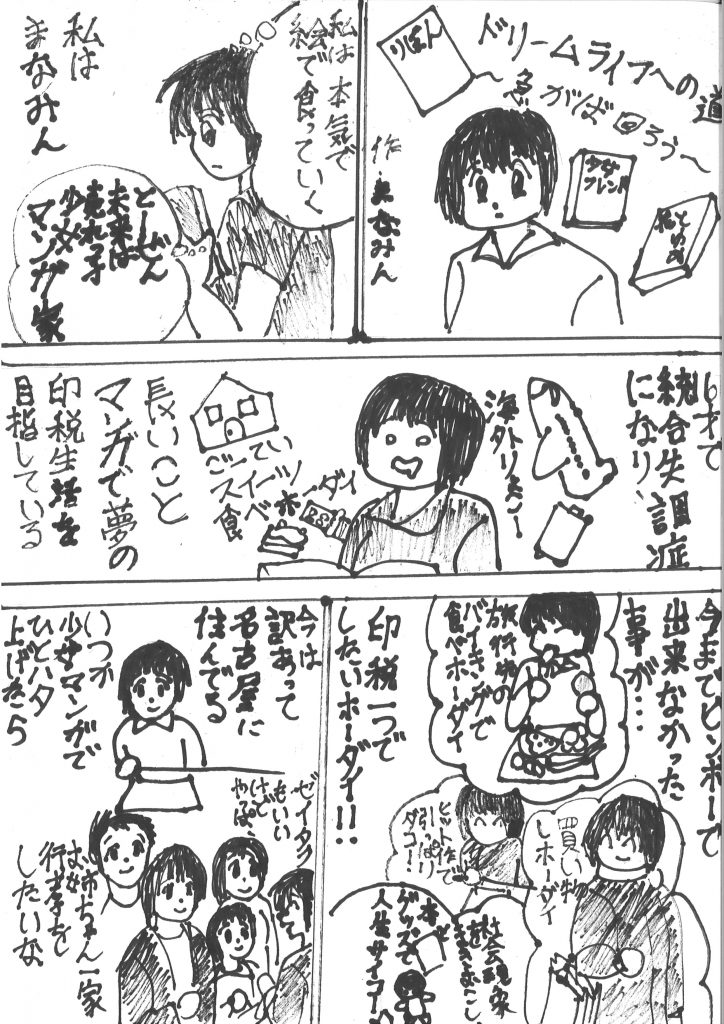 ドリームライフへの道
〜急がば回ろう〜
りぼん
少女
フレンド
作・まなみん
私は本気で
絵で食っていく
私は
まなみん
とーぜん
未来は
売れっ子
少女
マンガ家
16才で
統合失調症
になり、
海外リョコー
ごーてい
スイーツ
食べホーダイ
長いこと
マンガで夢の
印税生活を
目指している
今までビンボーで
出来なかった
事が…
旅行先の
バイキングで
食べホーダイ
印税一つで
したいホーダイ!!
買い物
しホーダイ
ヒット作で
引っぱり
ダコ!!
社会現象
を
まきおこし、
グッズで
人生サイコー!
今は
訳あって
名古屋に
住んでる
いつか
少女マンガで
ひとハタ
上げたら
ゼイタク
もいい
けど
やっぱ、
お姉ちゃん一家
孝行を
したいな